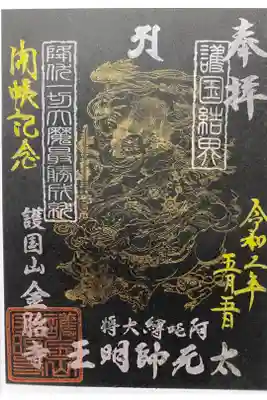 奉拝
護国結界
令和二年
五月五日
降伏一切大魔最勝成就
開帳記念
護国山 金胎寺
阿吒縛大将
太元帥明王